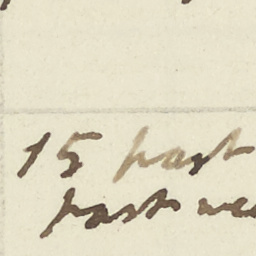 15 past
past we